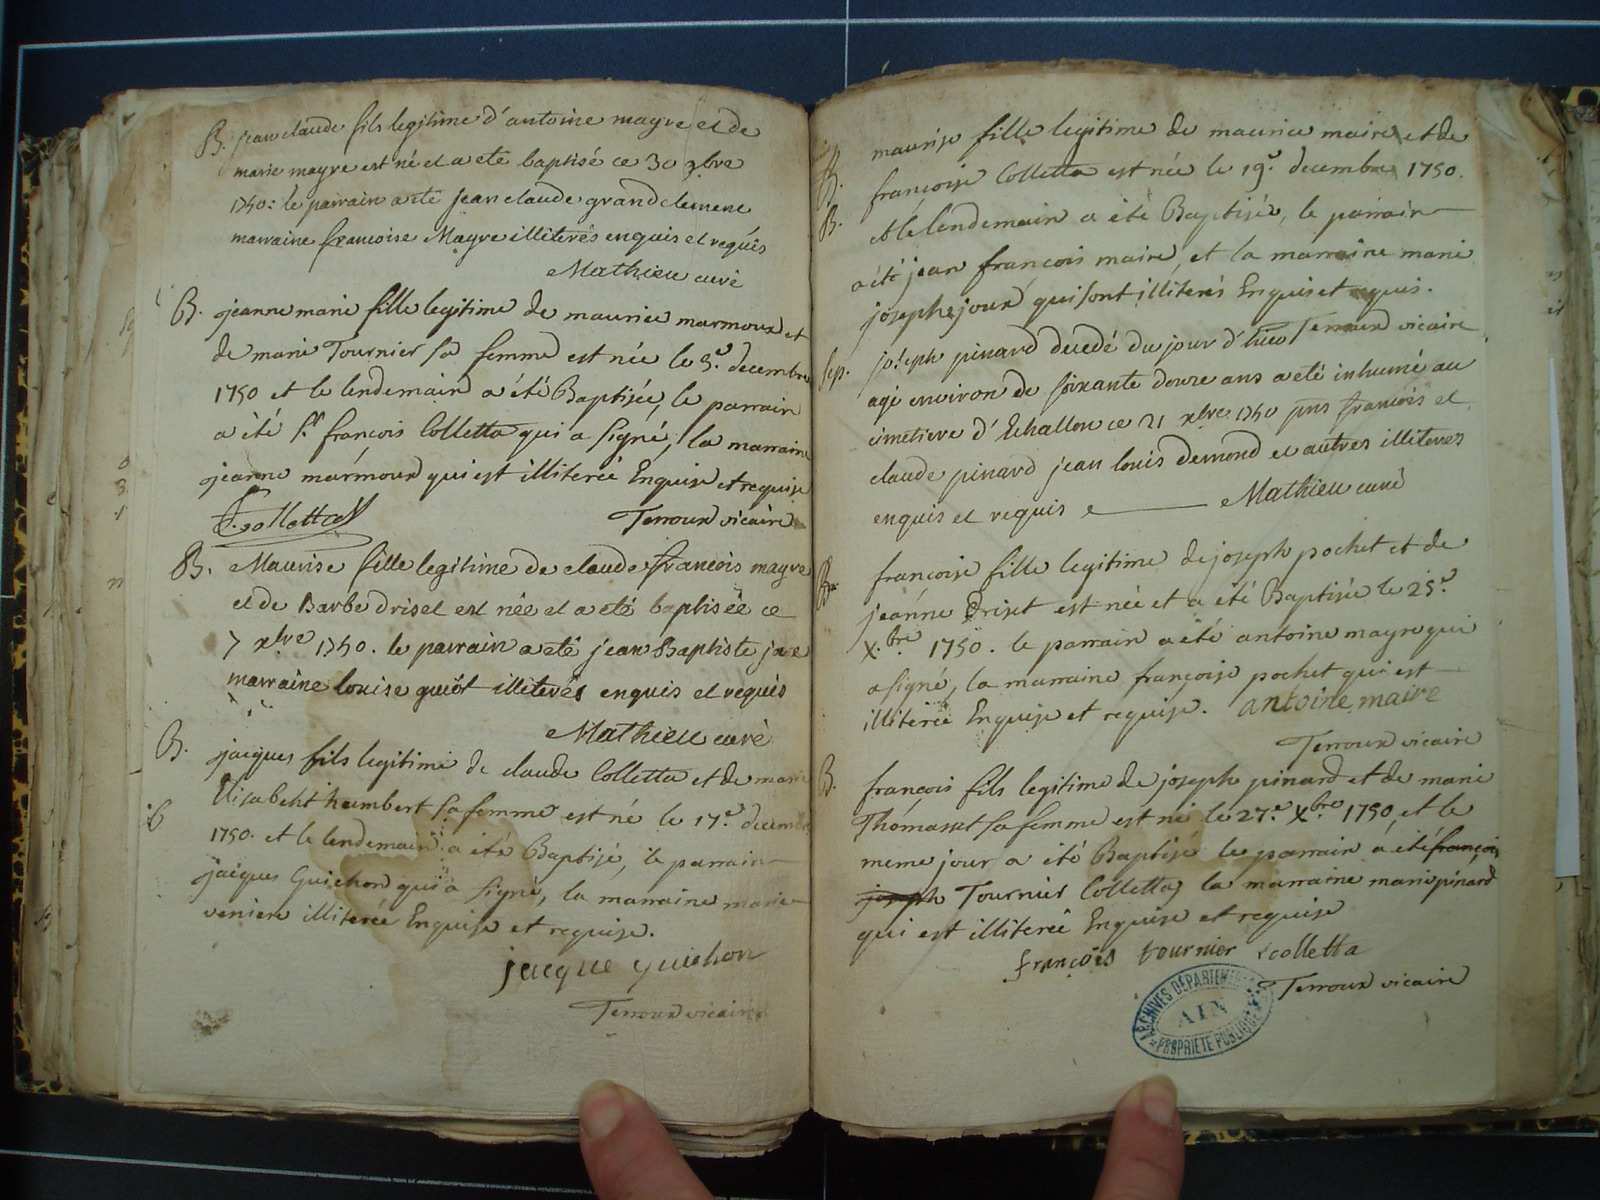 B. jean claude fils legitime d'antoine mayre et de
marie mayre est né et a eté baptisé ce 30 9bre
1750: le parrain a eté jean claude grandclement
marraine françoise Mayre illiterés enquis et requis
Mathieu curé
B. jeanne marie fille legitime de maurice marmoux et
de marie Tournier sa femme est née le 5.e decembre
1750 et le lendemain a été Baptisée, le parrain
a été Sr françois Colletta qui a signé, la marraine
jeanne marmoux qui est illiterée Enquise et requise
F. Colletta
Terroux vicaire
B. Maurise fille legitime de claude françois mayre
et de Barbe driset est née et a eté baptisée ce
7 xbre 1750. le parrain a eté jean Baptiste
marraine louise guiot illiterés enquis et requis
Mathieu curé
B. jacques fils legitime de claude Colletta et de marie
Elisabeht humbert sa femme est né le 17.e decembre
1750. et le lendemain a été Baptisé, le parrain
jacques Guichon qui a signé, la marraine marie
illiterée Enquise et requise.
jacque guichon
Terroux vicaire
B. maurise fille legitime de maurice maire et de
françoise Colletta est née le 19.e decembre 1750.
B. et le lendemain a été Baptisée, le parrain
a été jean françois maire, et la marraine marie
josephe joux qui sont illiterés Enquis et requis.
Terroux vicaire
Sep. joseph pinard decedé du jour d'hier
agé environ de soixante douze ans a eté inhumé au
cimetiere d'Echallon ce 21 xbre 1750 pnts françois et
claude pinard jean louis demond et autres illiteres
enquis et requis Mathieu curé
B. françoise fille legitime de joseph pochet et de
jeanne Driset est née et a été Baptisée le 25.e
X.bre 1750. le parrain a été antoine mayre qui
a signé, la marraine françoise pochet qui est
illiterée Enquise et requise. antoine maire
Terroux vicaire
B. françois fils legitime de joseph pinard et de marie
Thomasset sa femme est né le 27.e X.bre 1750, et le
meme jour a été Baptisé le parrain a été françois
joseph Tournier Colletta, la marraine marie pinard
qui est illiterée Enquise et requise
françois tournier colletta
Terroux vicaire
ARCHIVES DÉPARTEMENTALES
AIN
PROPRIÉTÉ PUBLIQUE